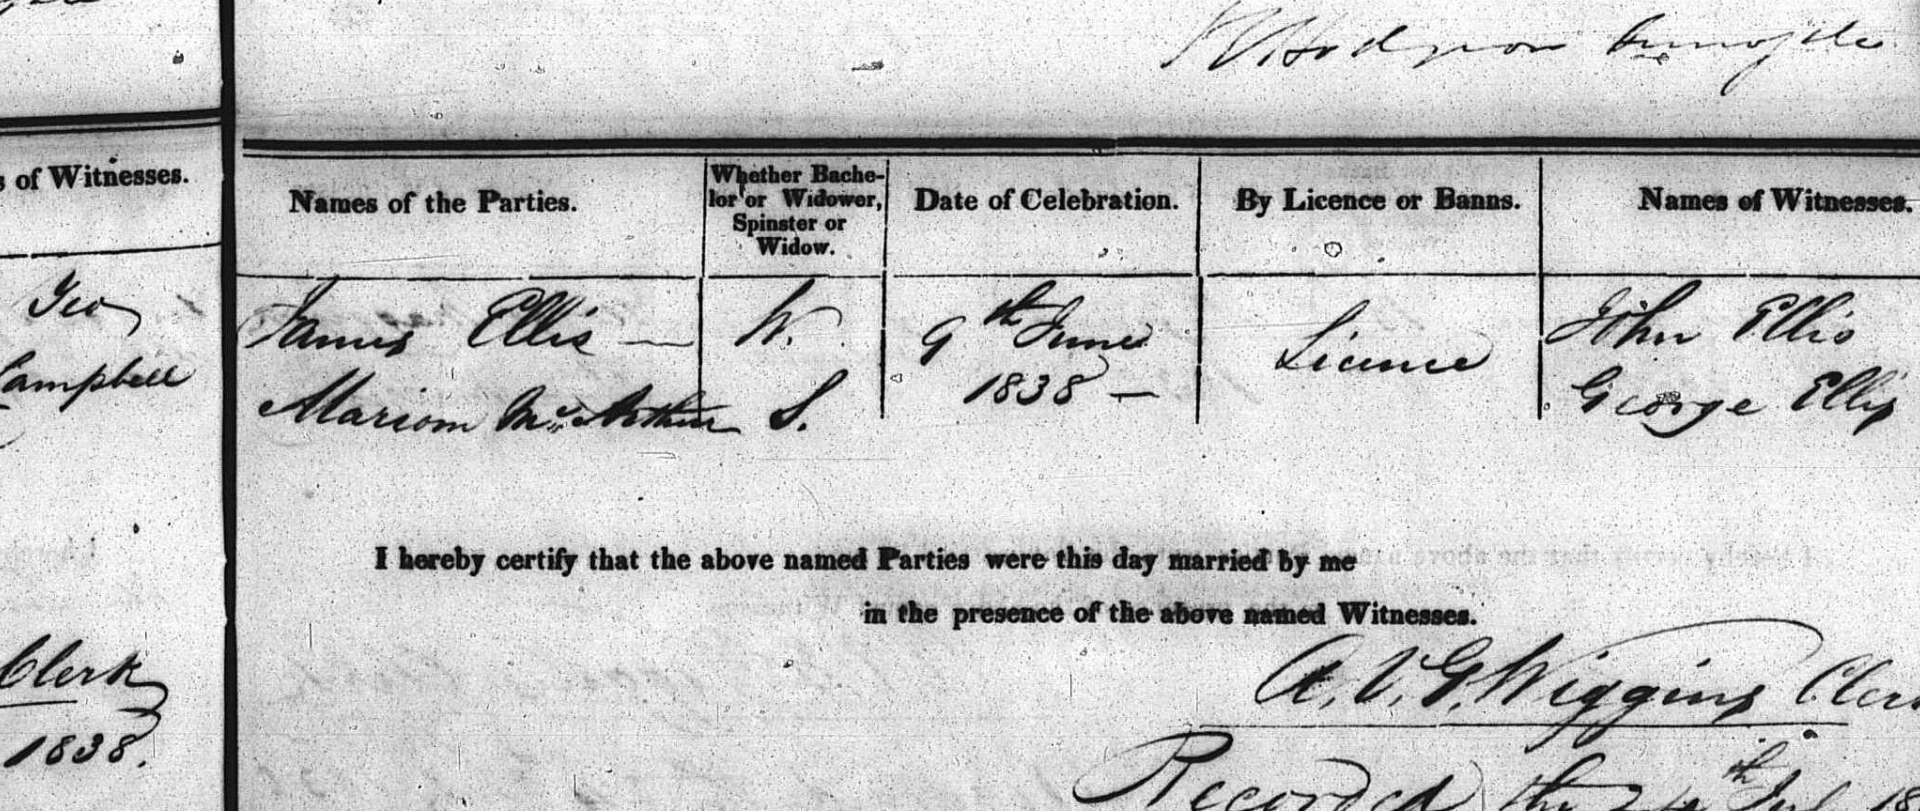 s of Witnesses.
Geo
Campbell
Clerk
1838.
Names of the Parties.
Whether Bache-
lor or Widower,
Spinster or
Widow.
Date of Celebration.
By Licence or Banns.
Names of Witnesses.
James Ellis — W. 9th June Licence John Ellis
Marion McArthur S. 1838 — George Ellis
I hereby certify that the above named Parties were this day married by me
in the presence of the above named Witnesses.
A. V. G. Wiggins Cler
Recorded the 24th July 18